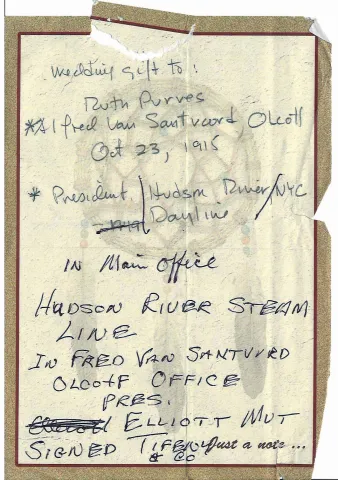 Wedding gift to:
Ruth Purves
*Alfred Van Santvoord Olcott
Oct 23, 1915
* President / Hudson River / NYC
Dayline
IN Main OFFICE
HUDSON RIVER STEAM
LINE
IN FRED VAN SANTVURD
OLCOTT OFFICE
PRES.
ELLIOTT MUT
SIGNED TIFENY
& CO
Just a note ...